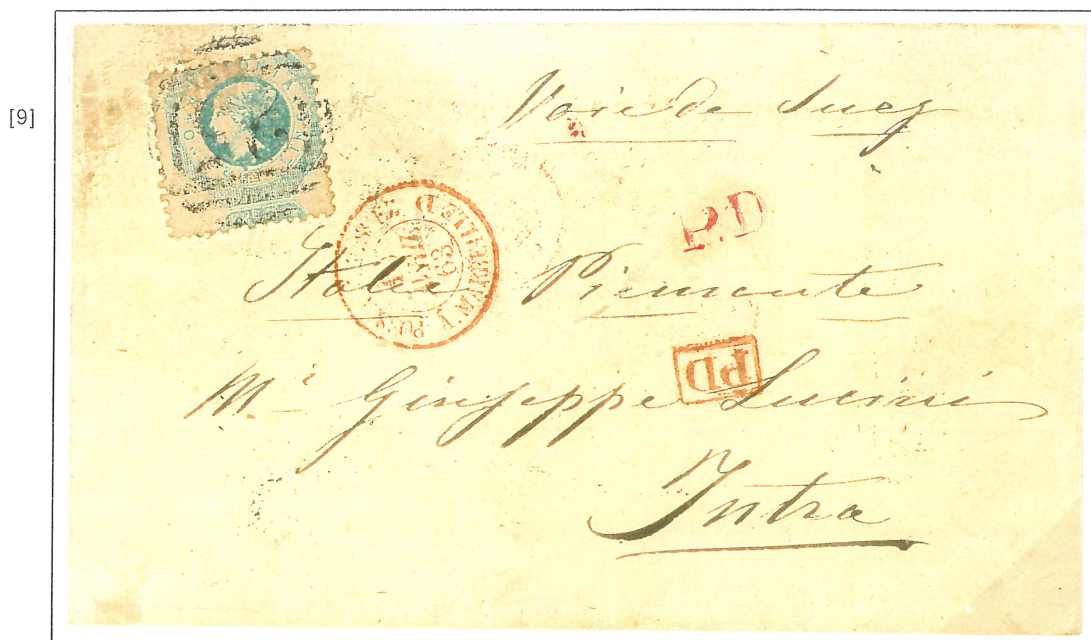 [9]
Voie de Suez
P.D
68
Italie Piemonte
PD
Mr Giuseppe Lucini
Intra